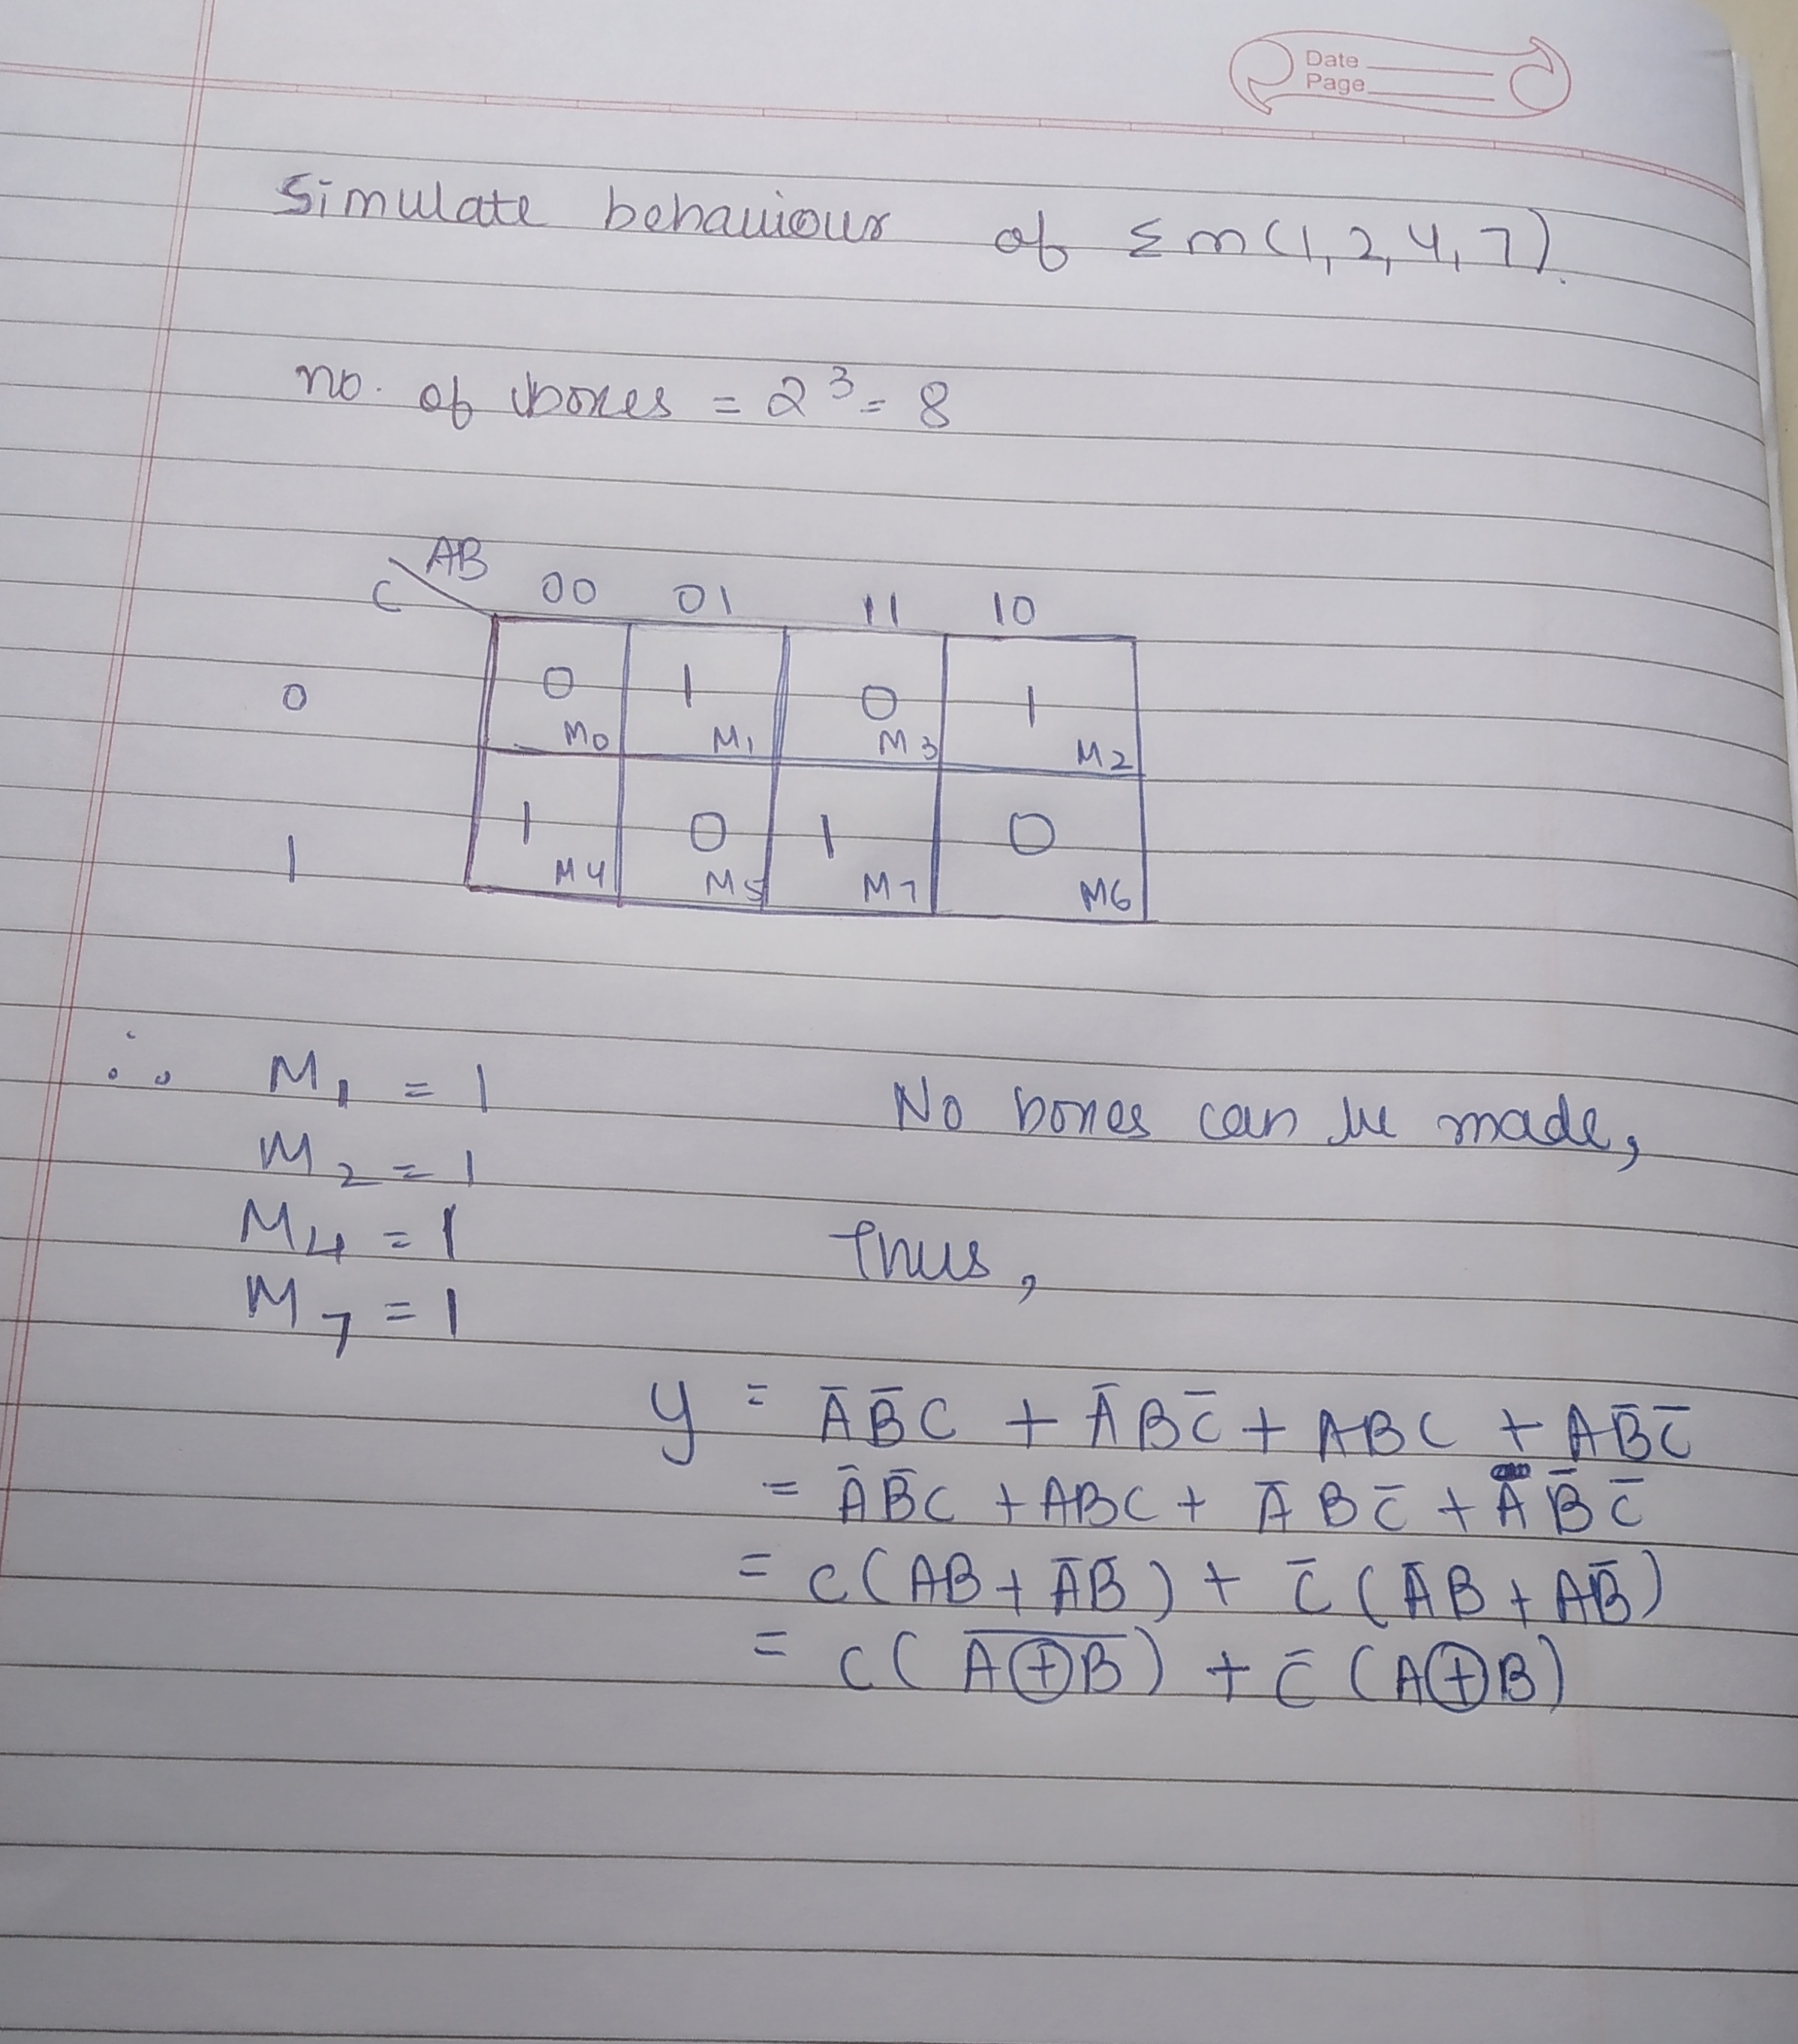 Date
Page
Simulate behaviour of Σm(1,2,4,7).
no. of boxes = 2³ = 8
AB
C 00 01 11 10
0 0 1 0 1
M0 M1 M3 M2
1 1 0 1 0
M4 M5 M7 M6
∴ M₁ = 1 No boxes can be made,
M₂ = 1
M₄ = 1 Thus,
M₇ = 1
y = A̅B̅C + A̅BC̅ + ABC + AB̅C̅
= A̅B̅C + ABC + A̅BC̅ + AB̅C̅
= C(AB + A̅B̅) + C̅(A̅B + AB̅)
= C(A̅ ̅⊕̅ ̅B̅) + C̅(A⊕B)